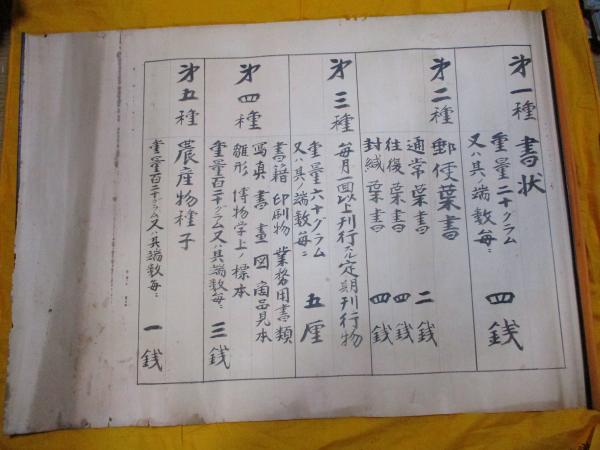 第一種 書状
重量二十グラム
又ハ其ノ端数毎ニ 四銭
第二種 郵便葉書
通常葉書 二銭
往復葉書 四銭
封緘葉書 四銭
第三種 毎月一回以上刊行スル定期刊行物
重量六十グラム
又ハ其ノ端数毎ニ 五厘
第四種 書籍 印刷物 業務用書類
写真 書 画 図 商品見本
雛形 博物学上ノ標本
重量百二十グラム又ハ其端数毎ニ 三銭
第五種 農産物種子
重量百二十グラム又ハ其端数毎ニ 一銭